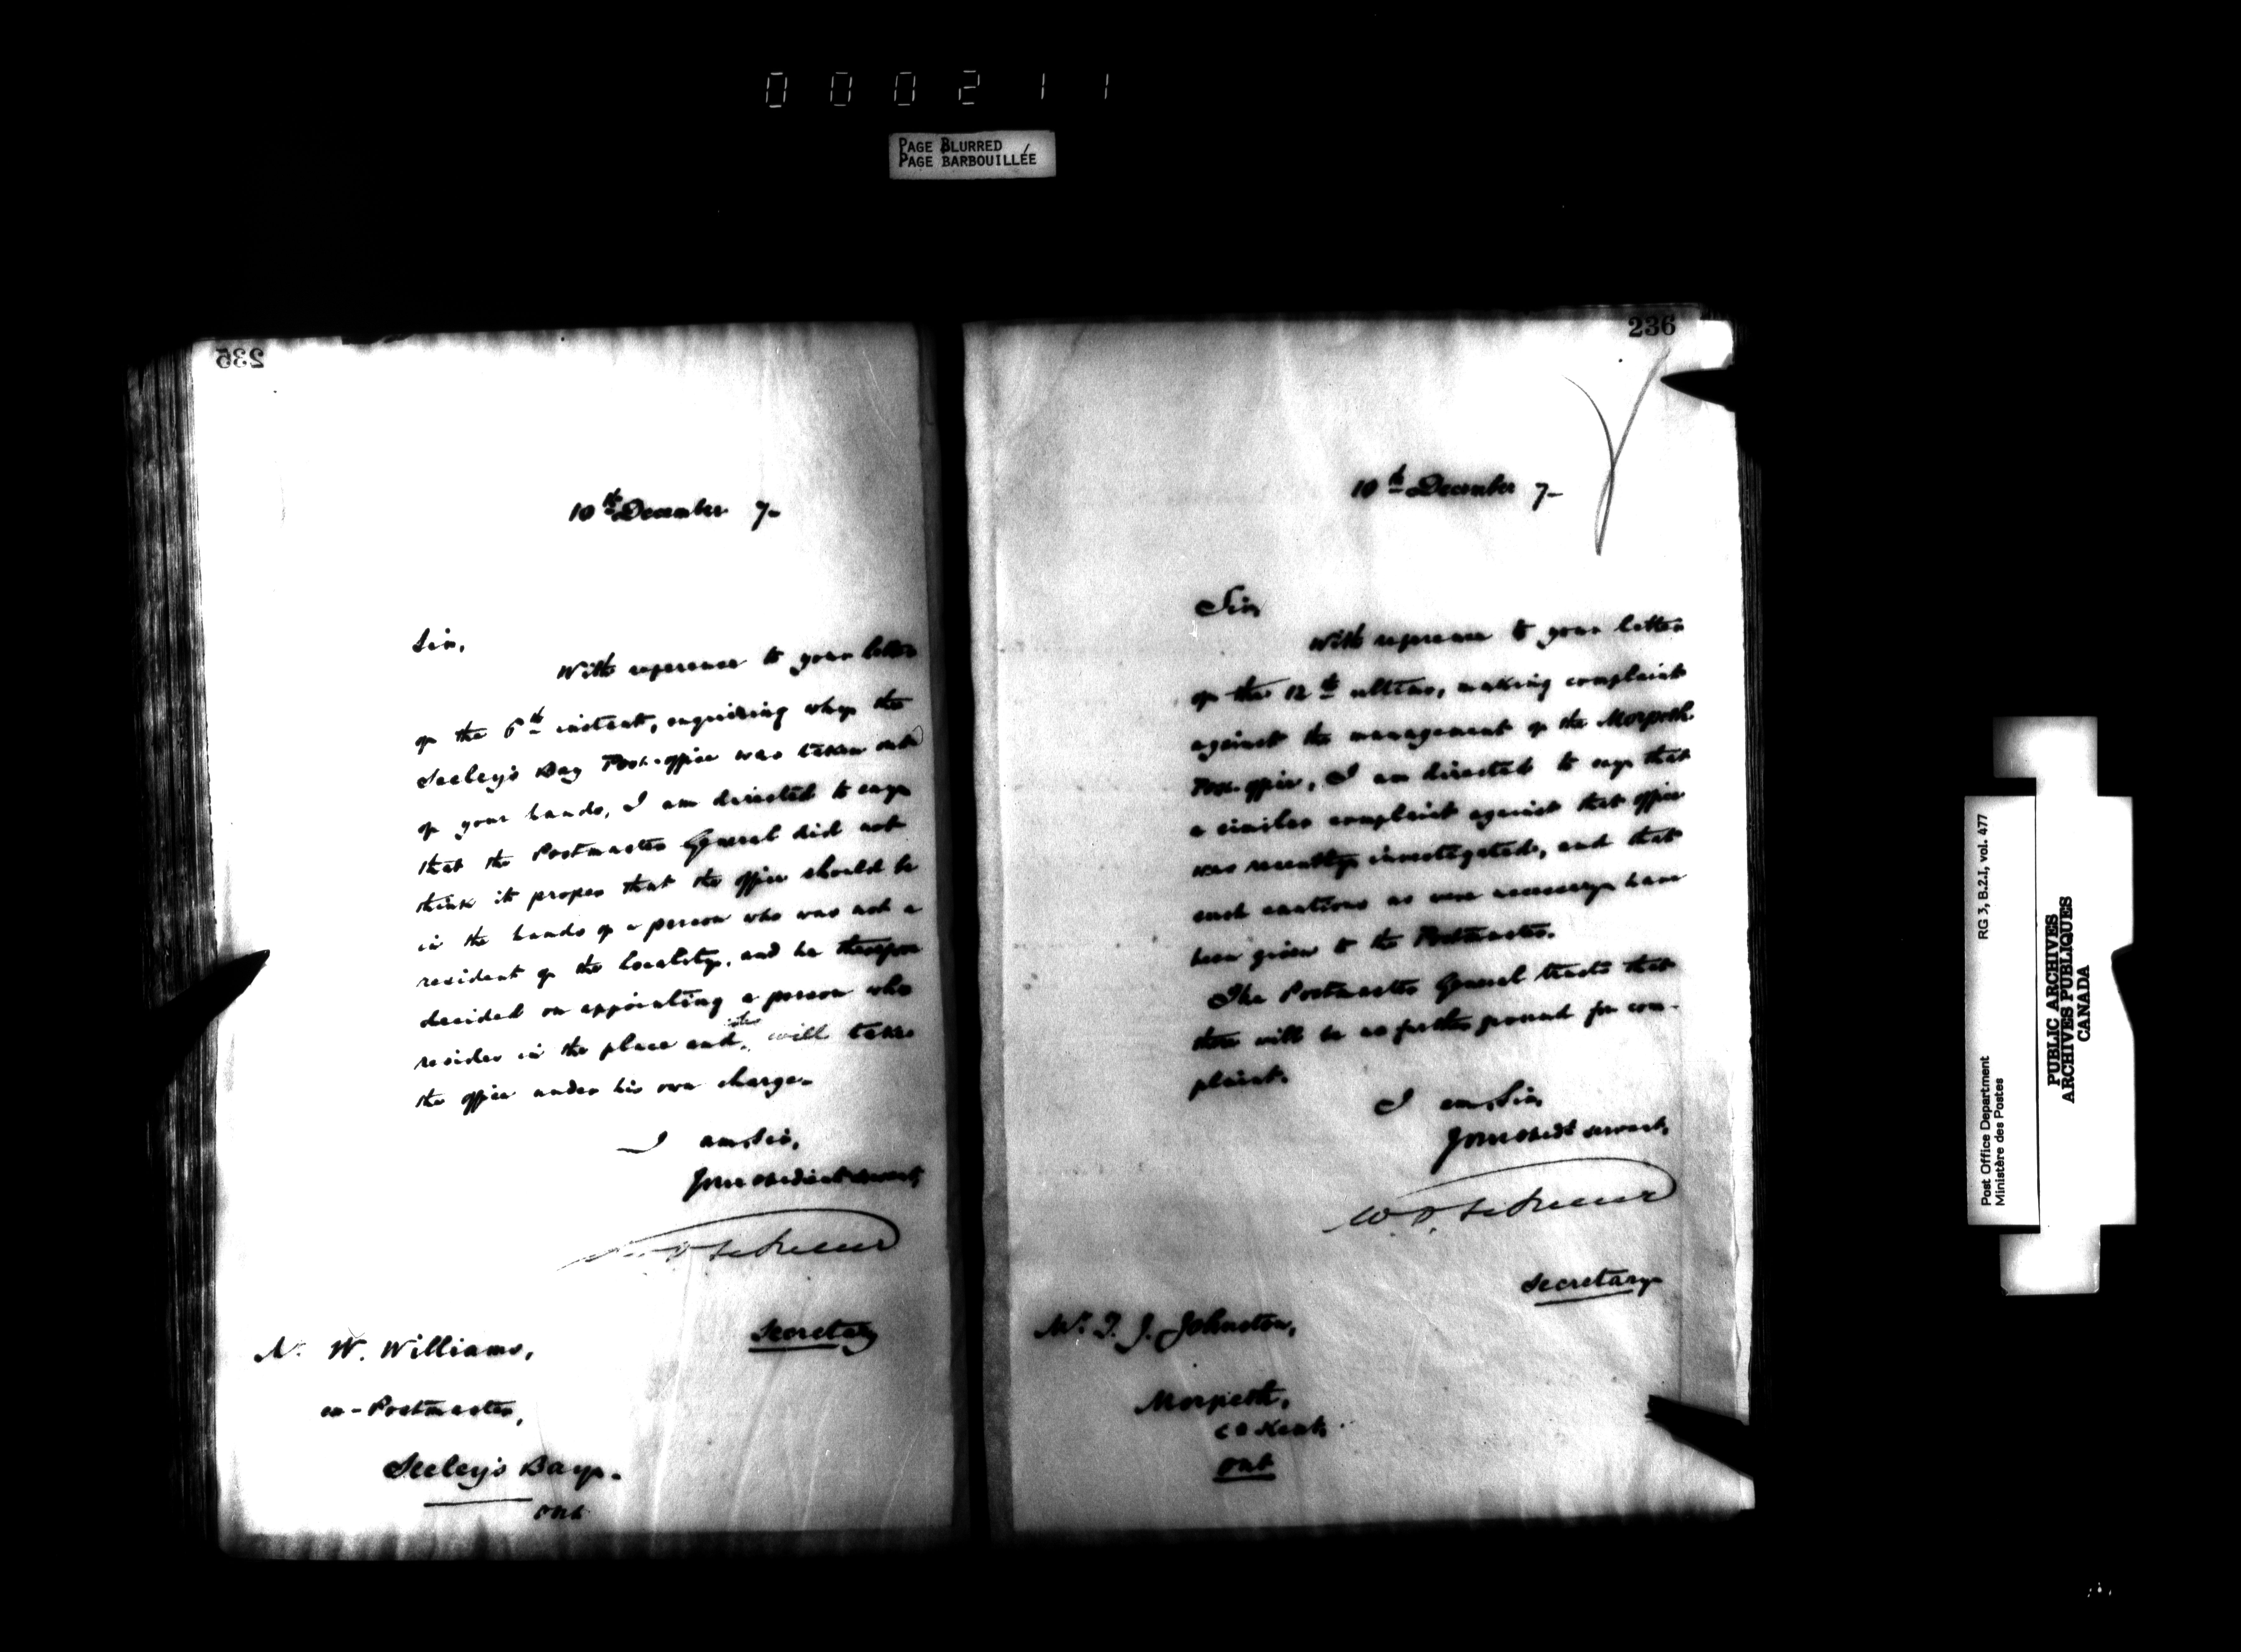 000211
PAGE BLURRED
PAGE BARBOUILLÉE
235
10th December 7-
Sir,
With reference to your letter
of the 6th instant, enquiring why the
Seeley's Bay Post-office was taken out
of your hands, I am directed to say
that the Postmaster General did not
think it proper that the office should be
in the hands of a person who was not a
resident of the locality, and he thereupon
decided on appointing a person who
resides in the place and who will take
the office under his own charge.
I am, Sir,
Your obedient servant,
Secretary
Mr. W. Williams,
ex-Postmaster,
Seeley's Bay.
Ont
236
10th December 7-
Sir,
With reference to your letter
of the 12th ultimo, making complaint
against the management of the Morpeth
Post-office, I am directed to say that
a similar complaint against that office
was recently investigated, and that
such cautions as were necessary have
been given to the Postmaster.
The Postmaster General trusts that
there will be no further ground for com-
plaint.
I am, Sir,
Your obedt servant,
W. D. LeSueur
Secretary
Mr. T. J. Johnston,
Morpeth,
Co Kent
Ont
Post Office Department
Ministère des Postes
RG 3, B.2.I, vol. 477
PUBLIC ARCHIVES
ARCHIVES PUBLIQUES
CANADA